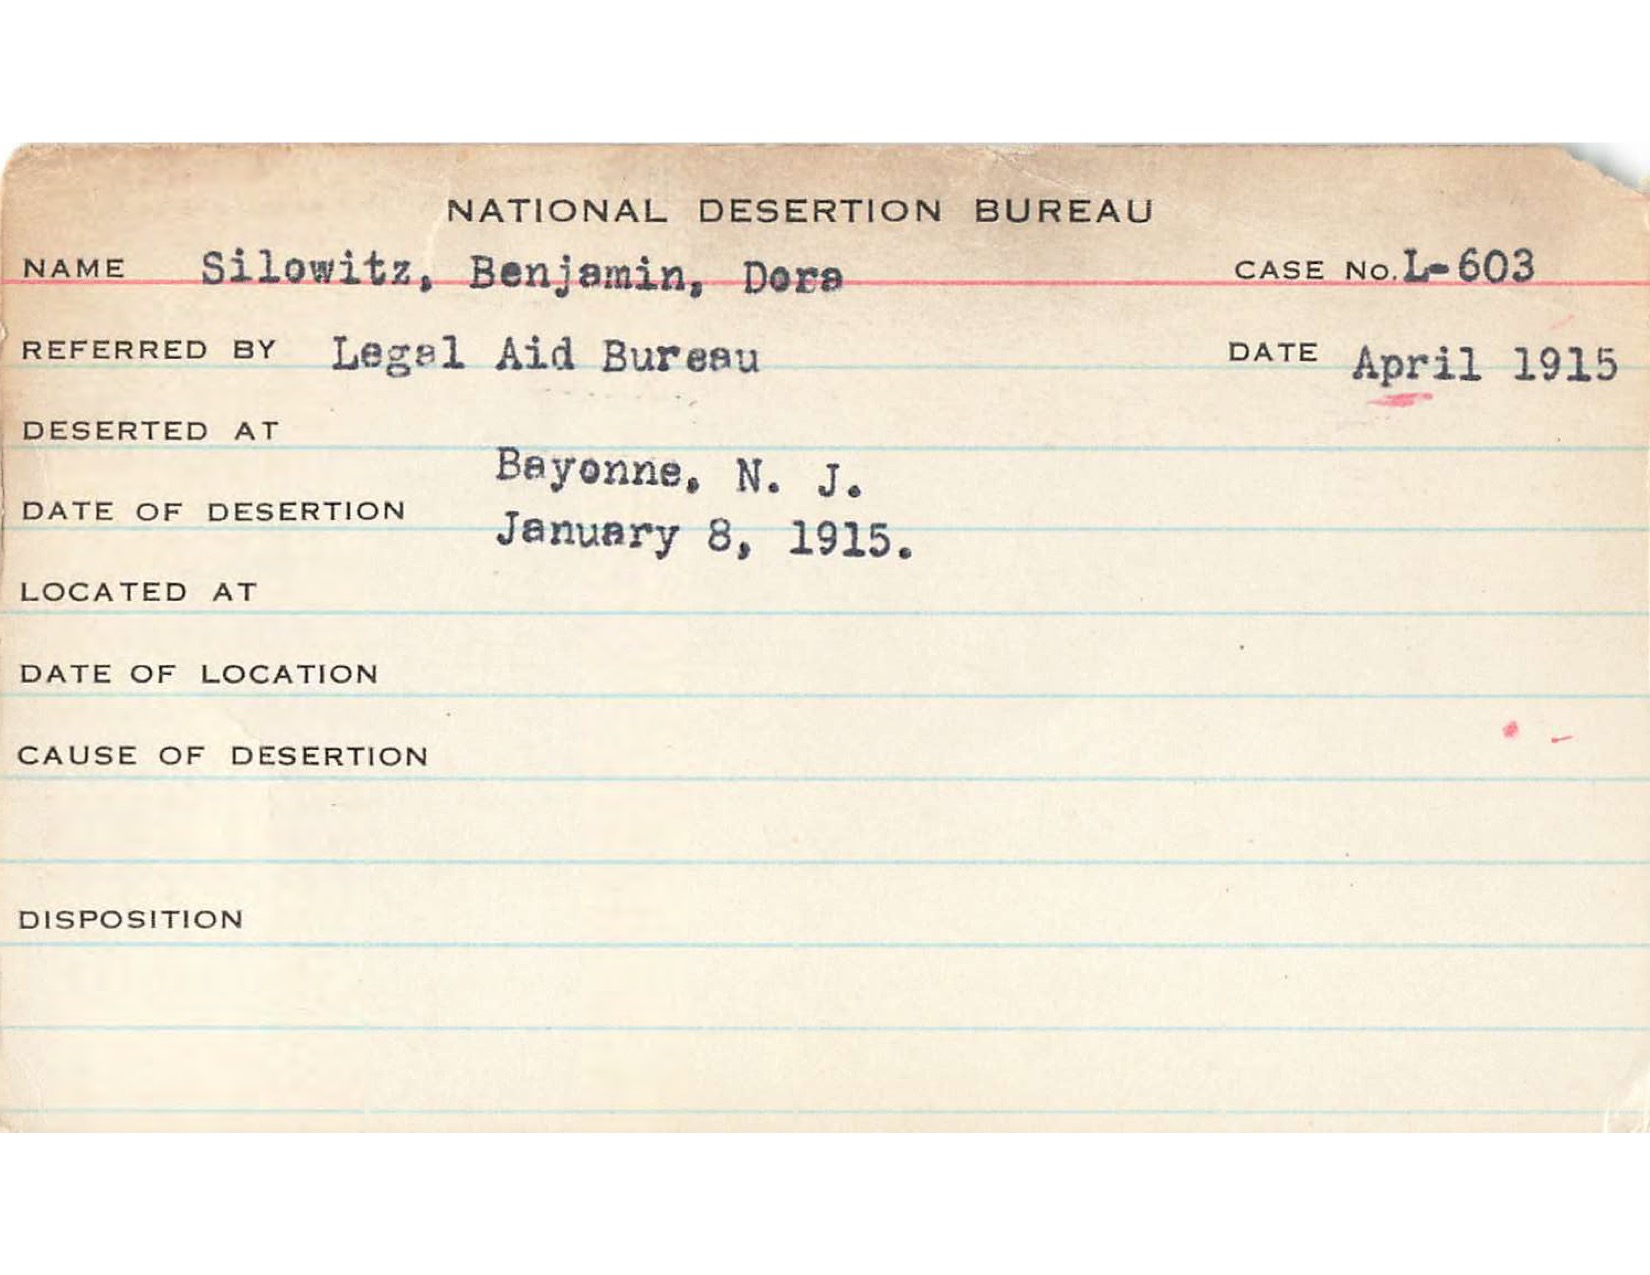 NATIONAL DESERTION BUREAU
NAME Silowitz, Benjamin, Dora CASE No. L-603
REFERRED BY Legal Aid Bureau DATE April 1915
DESERTED AT
Bayonne, N. J.
DATE OF DESERTION
January 8, 1915.
LOCATED AT
DATE OF LOCATION
CAUSE OF DESERTION
DISPOSITION